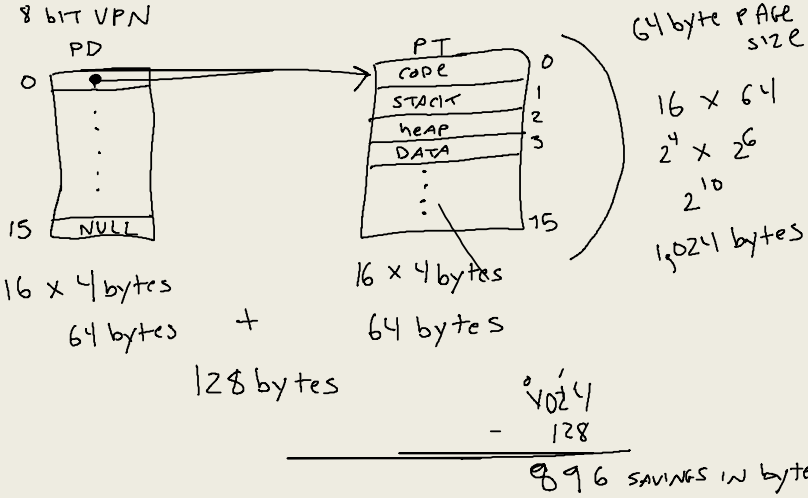 8 bIT VPN
PD
0
15
NULL
16 x 4 bytes
64 bytes
+
PT
CODE
0
STACK
1
heAP
2
DATA
3
15
16 x 4 bytes
64 bytes
128 bytes
64 byte PAGE
SIZE
16 x 64
2⁴ x 2⁶
2¹⁰
1,024 bytes
0 1
1024
- 128
896 SAVINGS IN byte